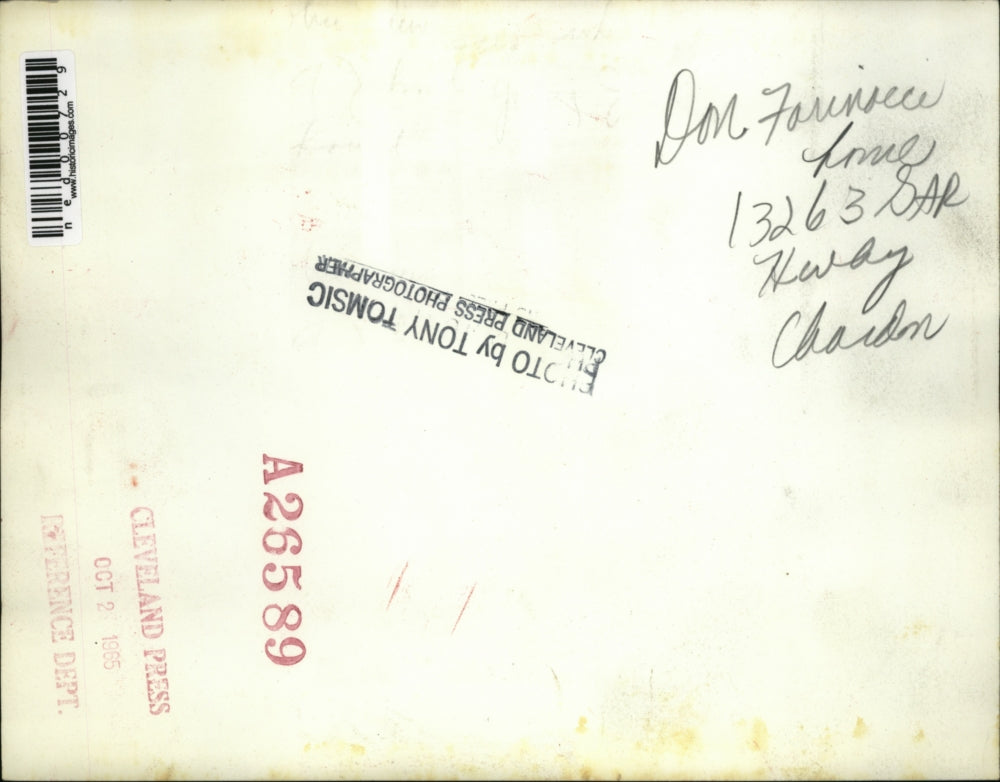 Don Farinacci
home
13263 GAR
Hway
Chardon
PHOTO by TONY TOMSIC
CLEVELAND PRESS PHOTOGRAPHER
A26589
CLEVELAND PRESS
OCT 2 1965
REFERENCE DEPT.
www.historicimages.com